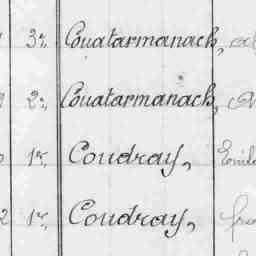 3r, Couatarmanach,
2r, Couatarmanach,
1r, Coudray,
2 1r, Coudray,